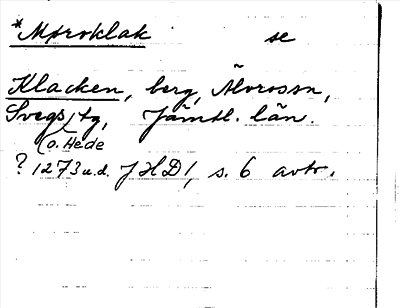 *Mproklak se
Klacken, berg, Älvrosen,
Svegs tg, Jämtl. län.
o. Hede
? 1273 u.d. JHD 1, s. 6 avtr.